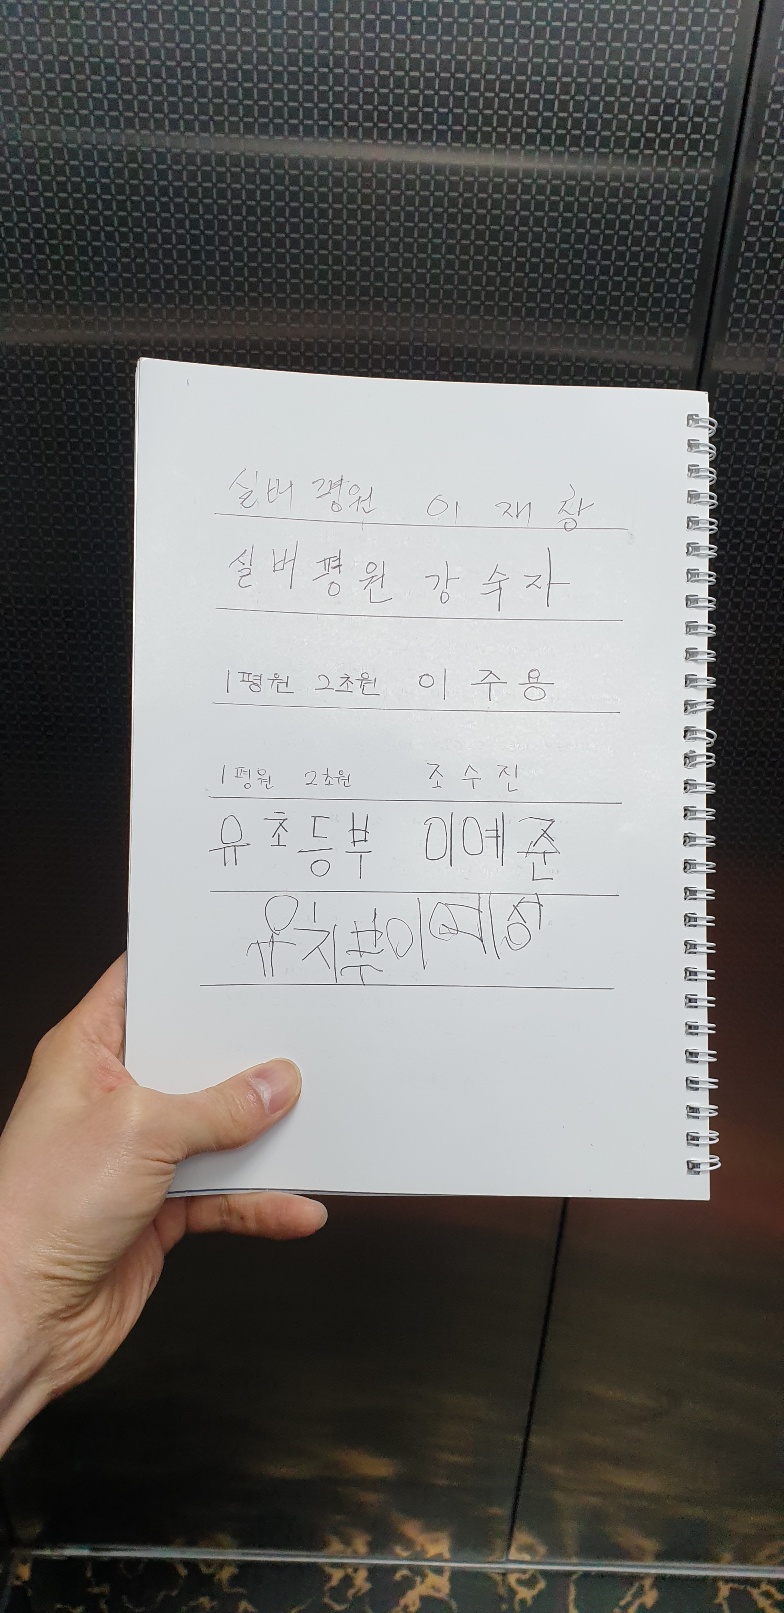 실버평원 이재창
실버평원 강숙자
1평원 2초원 이주용
1평원 2초원 조수진
유초등부 이예준
유치부 이예승